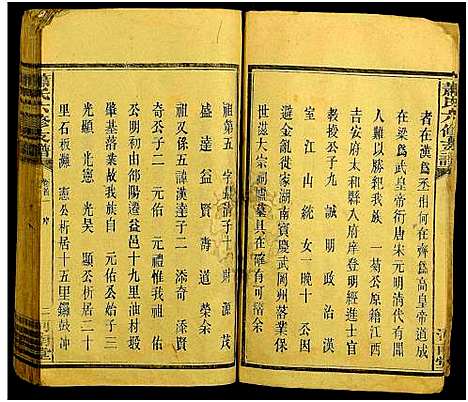 者在漢為丞相何在齊為高皇帝道成
在梁為武皇帝衍唐宋元明清代有聞
人難以勝紀我族一葛公原籍江西
吉安府太和縣人八府庠登明經進士官
教授公子九誠明政治漢
室江山統女一晚十公因
避金亂從家湖南寶慶武岡州落業保
世大宗祠墟墓具在確有可稽余
祖第五字漢清子十財源茂
盛達益賢青道榮泰
祖又係五諱漢達子二添奇添資
奇公子二元佑元禮惟我祖佑
公明初由邵陽遷益邑十九里油村塅
肇基落業故我族自元佑公始子三
光憲光昊顯公析居二十
里石板灘憲公析居十五里鑼鼓冲
蕭氏六修支譜